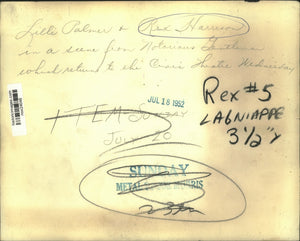 Lilli Palmer & Rex Harrison
in a scene from Notorious Gentleman
which returns to the Civic Theatre Wednesday
JUL 18 1952
Rex #5
LAGNIAPPE
3½"
ITEM
July 20
SUNDAY
METAL